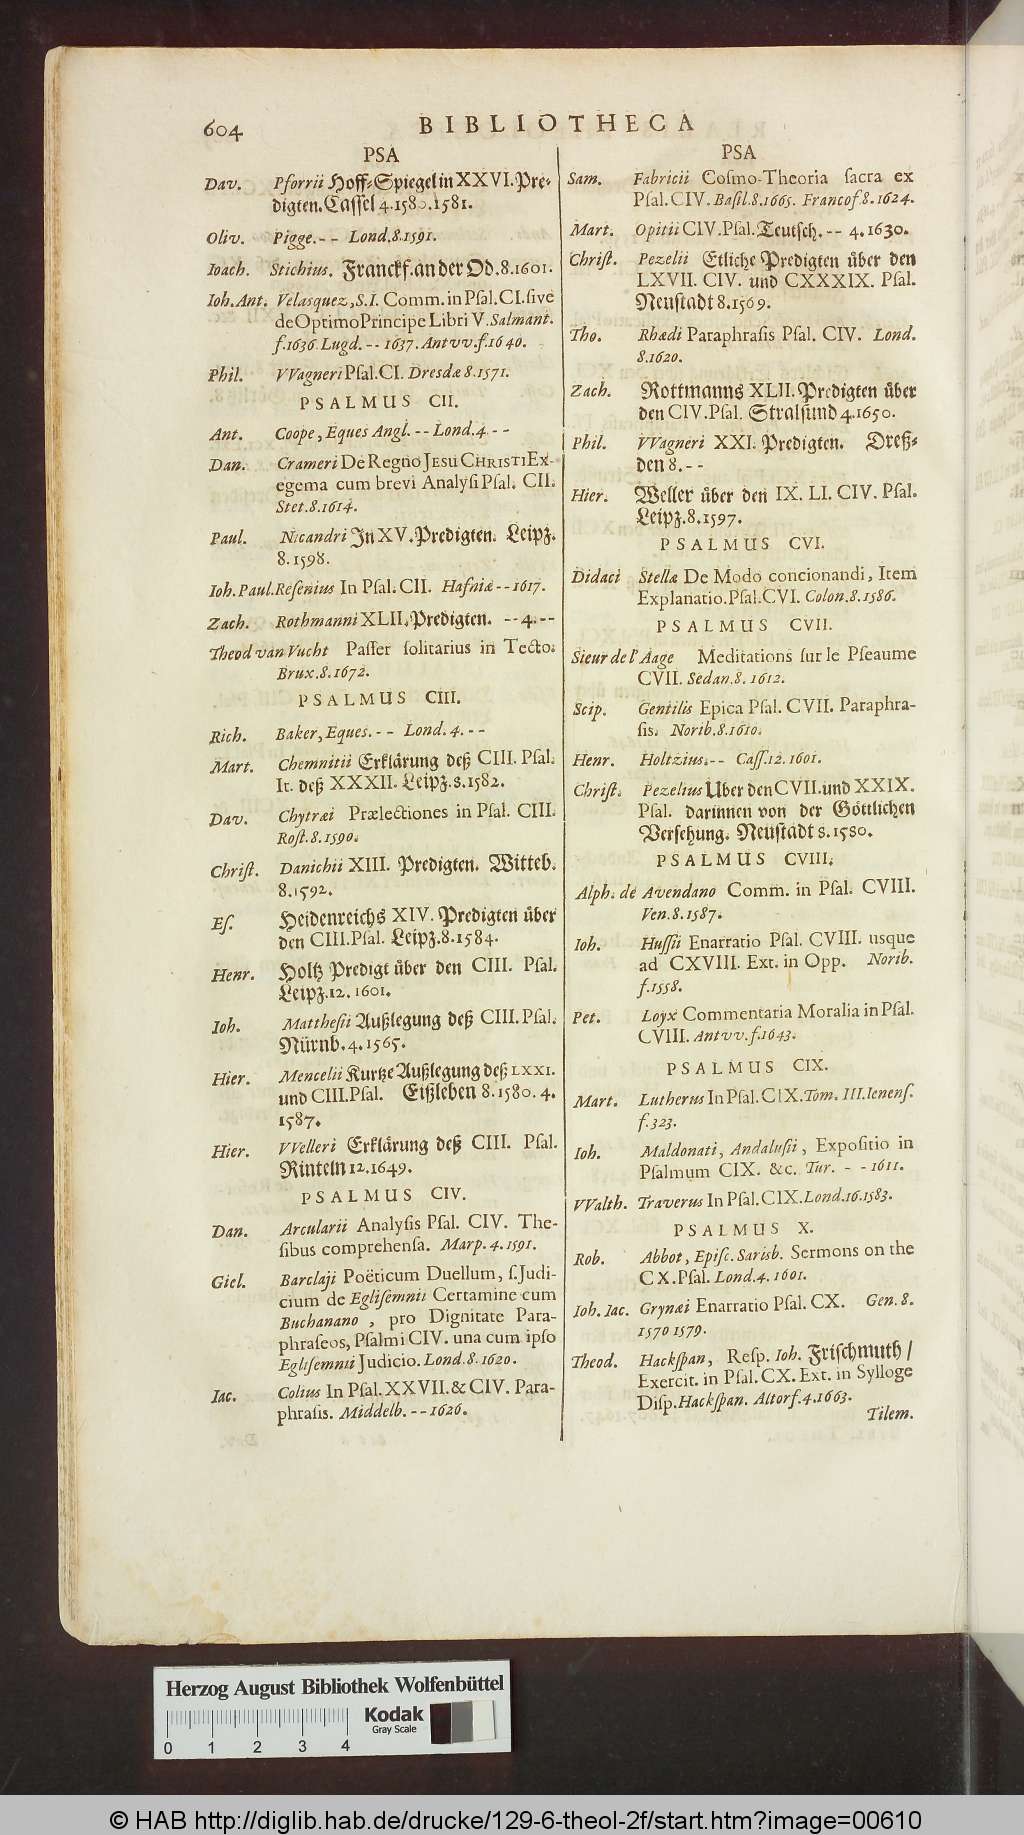 604
BIBLIOTHECA
PSA
Dav. Pforrii Hoff-Spiegel in XXVI. Pre-
digten. Cassel 4. 1580. 1581.
Oliv. Pigge. - - Lond. 8. 1591.
Ioach. Stichius. Franckf. an der Od. 8. 1601.
Ioh. Ant. Velasquez, S. I. Comm. in Psal. CI. sive
de Optimo Principe Libri V. Salmant.
f. 1636. Lugd. - - 1637. Antvv. f. 1640.
Phil. VVagneri Psal. CI. Dresdæ 8. 1571.
PSALMUS CII.
Ant. Coope, Eques Angl. - - Lond. 4. - -
Dan. Crameri De Regno JESU CHRISTI Ex-
egema cum brevi Analysi Psal. CII.
Stet. 8. 1614.
Paul. Nicandri In XV. Predigten. Leipz.
8. 1598.
Ioh. Paul. Resenius In Psal. CII. Hafniæ - - 1617.
Zach. Rothmanni XLII. Predigten. - - 4. - -
Theod van Vucht Passer solitarius in Tecto.
Brux. 8. 1672.
PSALMUS CIII.
Rich. Baker, Eques. - - Lond. 4. - -
Mart. Chemnitii Erklärung deß CIII. Psal.
It. deß XXXII. Leipz. 8. 1582.
Dav. Chytræi Prælectiones in Psal. CIII.
Rost. 8. 1590.
Christ. Danichii XIII. Predigten. Witteb.
8. 1592.
Es. Heidenreichs XIV. Predigten über
den CIII. Psal. Leipz. 8. 1584.
Henr. Holtz Predigt über den CIII. Psal.
Leipz. 12. 1601.
Ioh. Matthesii Außlegung deß CIII. Psal.
Nürnb. 4. 1565.
Hier. Mencelii Kurtze Außlegung deß LXXI.
und CIII. Psal. Eißleben 8. 1580. 4.
1587.
Hier. VVelleri Erklärung deß CIII. Psal.
Rinteln 12. 1649.
PSALMUS CIV.
Dan. Arcularii Analysis Psal. CIV. The-
sibus comprehensa. Marp. 4. 1591.
Giel. Barclaji Poëticum Duellum, s. Judi-
cium de Eglisemnii Certamine cum
Buchanano, pro Dignitate Para-
phraseos, Psalmi CIV. una cum ipso
Eglisemnii Judicio. Lond. 8. 1620.
Iac. Colius In Psal. XXVII. & CIV. Para-
phrasis. Middelb. - - 1626.
PSA
Sam. Fabricii Cosmo-Theoria sacra ex
Psal. CIV. Basil. 8. 1665. Francof. 8. 1624.
Mart. Opitii CIV. Psal. Teutsch. - - 4. 1630.
Christ. Pezelii Etliche Predigten über den
LXVII. CIV. und CXXXIX. Psal.
Neustadt 8. 1569.
Tho. Rhædi Paraphrasis Psal. CIV. Lond.
8. 1620.
Zach. Rottmanns XLII. Predigten über
den CIV. Psal. Stralsund 4. 1650.
Phil. VVagneri XXI. Predigten. Dreß-
den 8. - -
Hier. Weller über den IX. LI. CIV. Psal.
Leipz. 8. 1597.
PSALMUS CVI.
Didaci Stellæ De Modo concionandi, Item
Explanatio. Psal. CVI. Colon. 8. 1586.
PSALMUS CVII.
Sieur de l'Aage Meditations sur le Pseaume
CVII. Sedan. 8. 1612.
Scip. Gentilis Epica Psal. CVII. Paraphra-
sis. Norib. 8. 1610.
Henr. Holtzius. - - Cass. 12. 1601.
Christ. Pezelius Uber den CVII. und XXIX.
Psal. darinnen von der Göttlichen
Versehung. Neustadt 8. 1580.
PSALMUS CVIII.
Alph. de Avendano Comm. in Psal. CVIII.
Ven. 8. 1587.
Ioh. Hussii Enarratio Psal. CVIII. usque
ad CXVIII. Ext. in Opp. Norib.
f. 1558.
Pet. Loyx Commentaria Moralia in Psal.
CVIII. Antvv. f. 1643.
PSALMUS CIX.
Mart. Lutherus In Psal. CIX. Tom. III. Ienens.
f. 323.
Ioh. Maldonati, Andalusii, Expositio in
Psalmum CIX. &c. Tur. - - 1611.
VValth. Traverus In Psal. CIX. Lond. 16. 1583.
PSALMUS X.
Rob. Abbot, Episc. Sarisb. Sermons on the
CX. Psal. Lond. 4. 1601.
Ioh. Iac. Grynæi Enarratio Psal. CX. Gen. 8.
1570 1579.
Theod. Hackspan, Resp. Ioh. Frischmuth/
Exercit. in Psal. CX. Ext. in Sylloge
Disp. Hackspan. Altorf. 4. 1663.
Tilem.
Herzog August Bibliothek Wolfenbüttel
Kodak
Gray Scale
0 1 2 3 4
© HAB http://diglib.hab.de/drucke/129-6-theol-2f/start.htm?image=00610